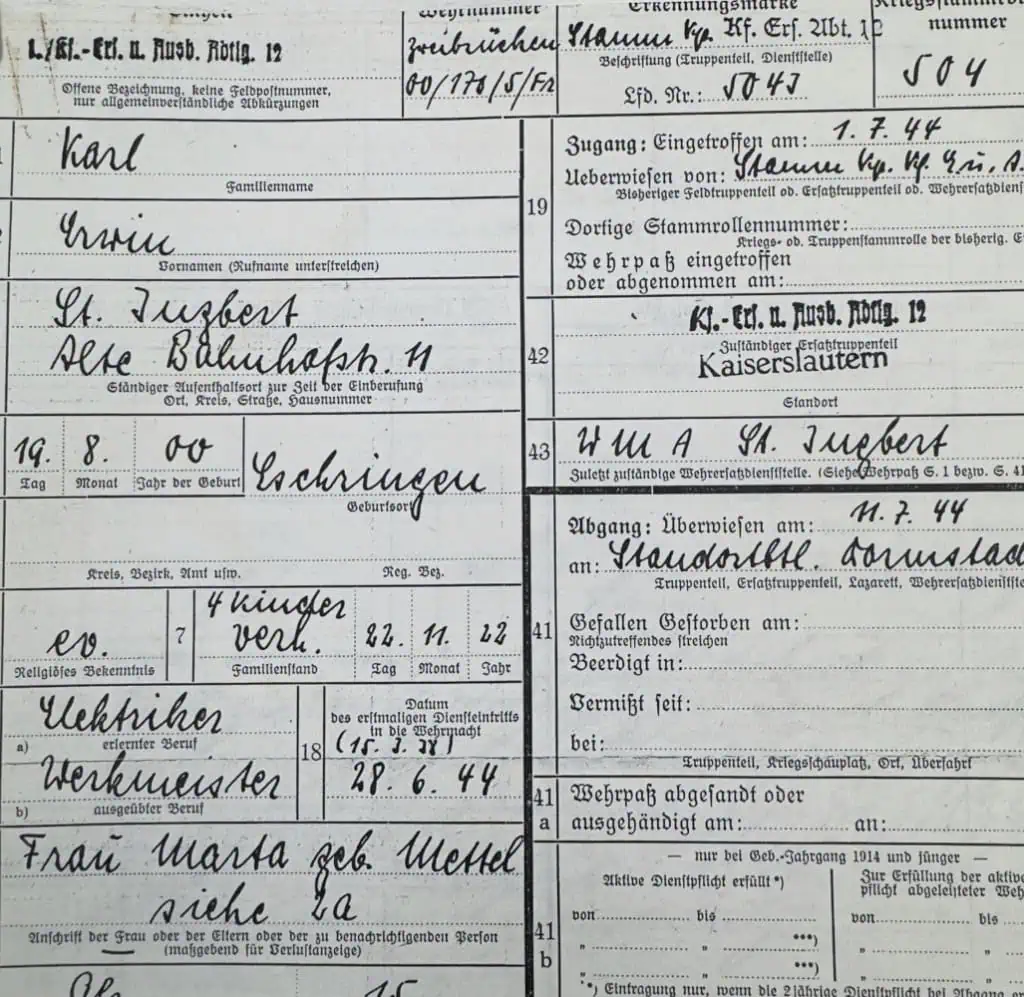 Wehrnummer
Erkennungsmarke
nummer
1./Kf.-Ers. u. Ausb. Abtlg. 12
Offene Bezeichnung, keine Feldpostnummer,
nur allgemeinverständliche Abkürzungen
Zweibrücken
00/170/5/
Stamm Kp. Kf. Ers. Abt. 12
Beschriftung (Truppenteil, Dienststelle)
Lfd. Nr.: 5043
504
Karl
Familienname
Erwin
Vornamen (Rufname unterstreichen)
St. Ingbert
Alte Bahnhofstr. 11
Ständiger Aufenthaltsort zur Zeit der Einberufung
Ort, Kreis, Straße, Hausnummer
19. 8. 00
Tag Monat Jahr der Geburt
Eschringen
Geburtsort
Kreis, Bezirk, Amt usw. Reg. Bez.
ev.
Religiöses Bekenntnis
7
4 Kinder
verh. 22. 11. 22
Familienstand Tag Monat Jahr
Elektriker
a) erlernter Beruf
Werkmeister
b) ausgeübter Beruf
18
Datum
des erstmaligen Diensteintritts
in die Wehrmacht
(15. 3. 38)
28. 6. 44
Frau Marta geb. Mettel
siehe 2a
Anschrift der Frau oder der Eltern oder der zu benachrichtigenden Person
(maßgebend für Verlustanzeige)
19
Zugang: Eingetroffen am: 1. 7. 44
Ueberwiesen von: Stamm Kp. Kf. E. u. A.
Bisheriger Feldtruppenteil od. Ersatztruppenteil od. Wehrersatzdienst
Dortige Stammrollennummer:
Kriegs- od. Truppenstammrolle der bisherig. E
Wehrpaß eingetroffen
oder abgenommen am:
42
Kf.-Ers. u. Ausb. Abtlg. 12
Zuständiger Ersatztruppenteil
Kaiserslautern
Standort
43
W M A St. Ingbert
Zuletzt zuständige Wehrersatzdienststelle. (Siehe Wehrpaß S. 1 bezw. S. 41
41
Abgang: Überwiesen am: 11. 7. 44
an: Standortbtl. Darmstad
Truppenteil, Ersatztruppenteil, Lazarett, Wehrersatzdienstste
Gefallen Gestorben am:
Nichtzutreffendes streichen
Beerdigt in:
Vermißt seit:
bei:
Truppenteil, Kriegsschauplatz, Ort, Überfahrt
41
a
Wehrpaß abgesandt oder
ausgehändigt am: an:
41
b
— nur bei Geb.-Jahrgang 1914 und jünger —
Aktive Dienstpflicht erfüllt *)
von bis
" " ***)
" " ***)
Zur Erfüllung der aktive
pflicht abgeleisteter Weh
von bis
" "
" "
*) Eintragung nur, wenn die 2jährige Dienstpflicht bei Abgang